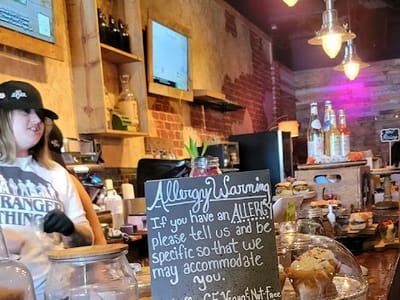 Allergy Warning
If you have an ALLERGY
please tell us and be
specific so that we
may accommodate
you.
GF, Vegan & Nut-Free
STRANGER
THINGS